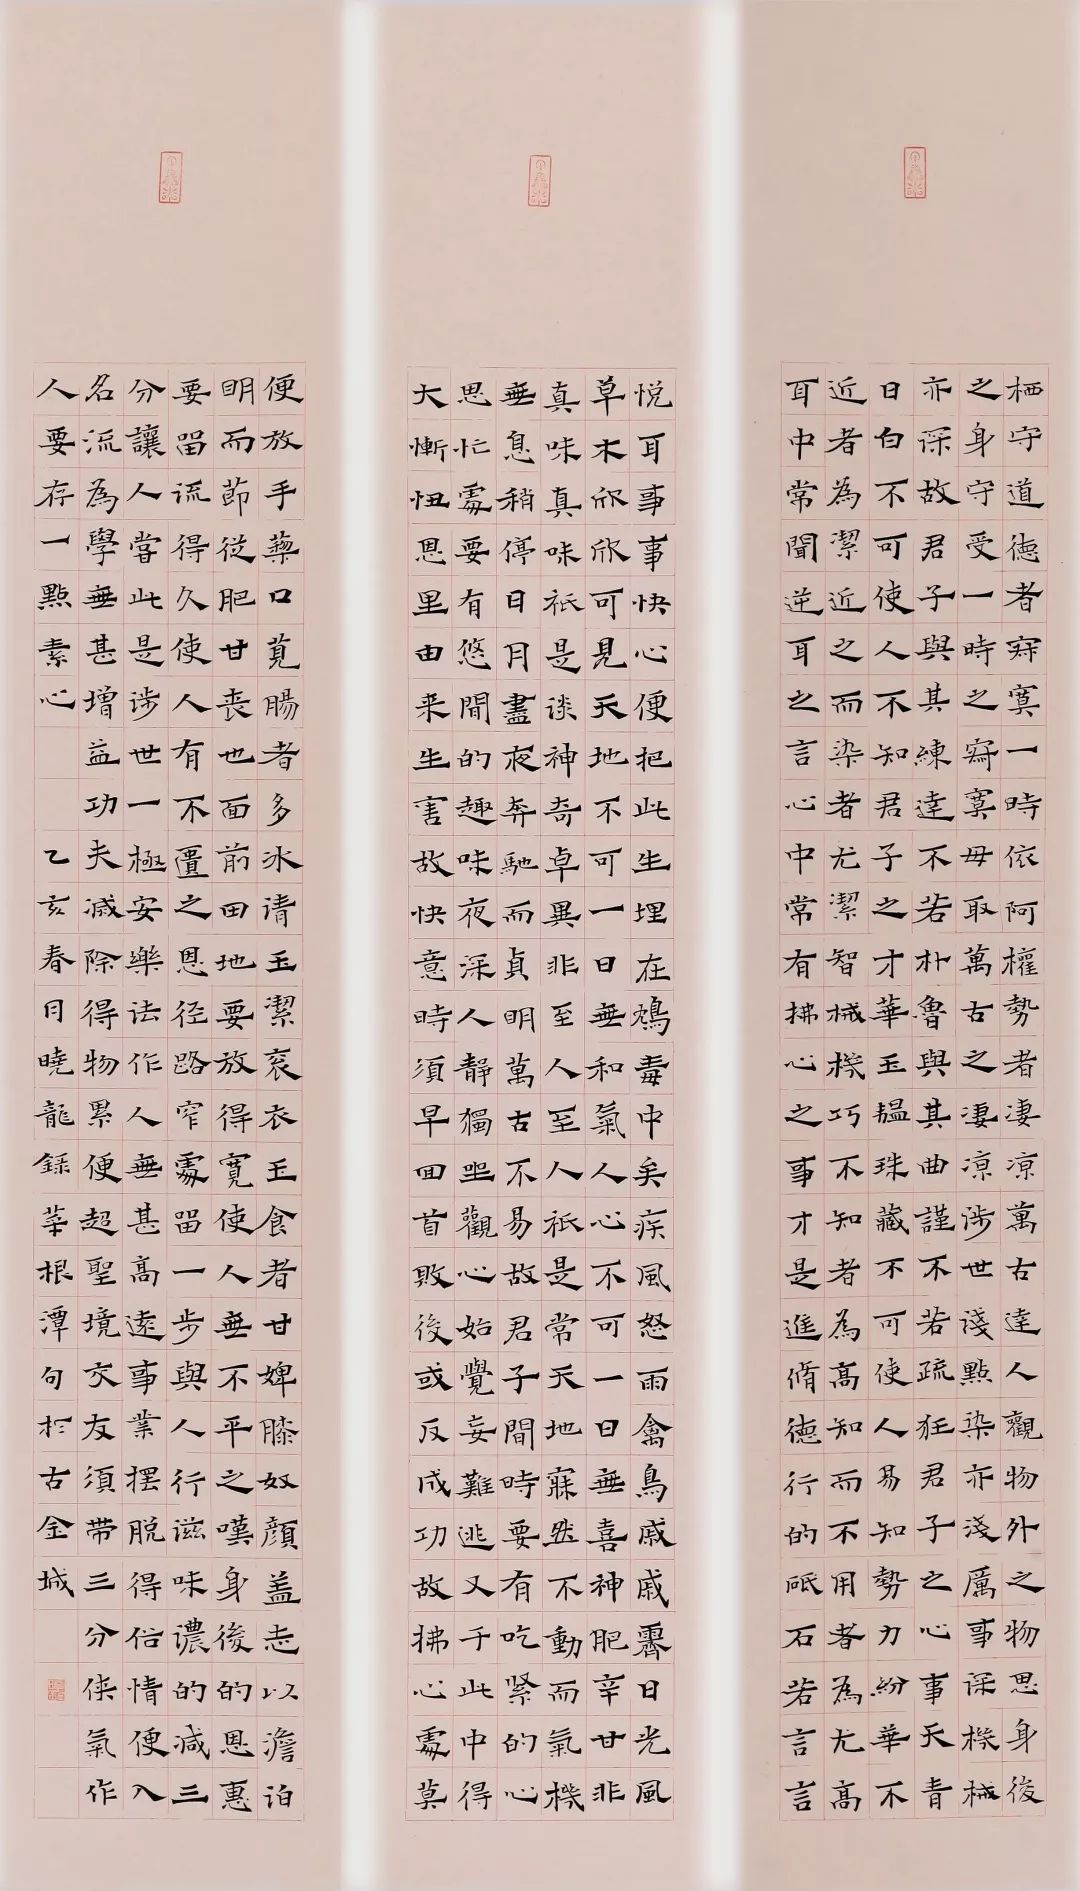 栖守道德者寂寞一時依阿權勢者凄涼萬古達人觀物外之物思身後
之身守受一時之寂寞毋取萬古之凄涼涉世淺點染亦淺厲事深機械
亦深故君子與其練達不若朴魯與其曲謹不若疏狂君子之心事天青
日白不可使人不知君子之才華玉韞珠藏不可使人易知勢力紛華不
近者為潔近之而染者尤潔智械機巧不知者為高知而不用者為尤高
耳中常聞逆耳之言心中常有拂心之事才是進脩德行的砥石若言言
悅耳事事快心便把此生埋在鴆毒中矣疾風怒雨禽鳥戚戚霽日光風
草木欣欣可見天地不可一日無和氣人心不可一日無喜神肥辛甘非
真味真味祇是淡神奇卓異非至人至人祇是常天地寂然不動而氣機
無息稍停日月晝夜奔馳而貞明萬古不易故君子閒時要有吃緊的心
思忙處要有悠閒的趣味夜深人靜獨坐觀心始覺妄難逃又于此中得
大慚忸恩里由來生害故快意時須早回首敗後或反成功故拂心處莫
便放手藜口莧腸者多冰清玉潔袞衣玉食者甘婢膝奴顏蓋志以澹泊
明而節從肥甘喪也面前田地要放得寬使人無不平之嘆身後的恩惠
要留流得久使人有不匱之恩徑路窄處留一步與人行滋味濃的減三
分讓人嘗此是涉世一極安樂法作人無甚高遠事業擺脫得俗情便入
名流為學無甚增益功夫減除得物累便超聖境交友須帶三分俠氣作
人要存一點素心 乙亥春月曉龍錄菜根潭句於古金城